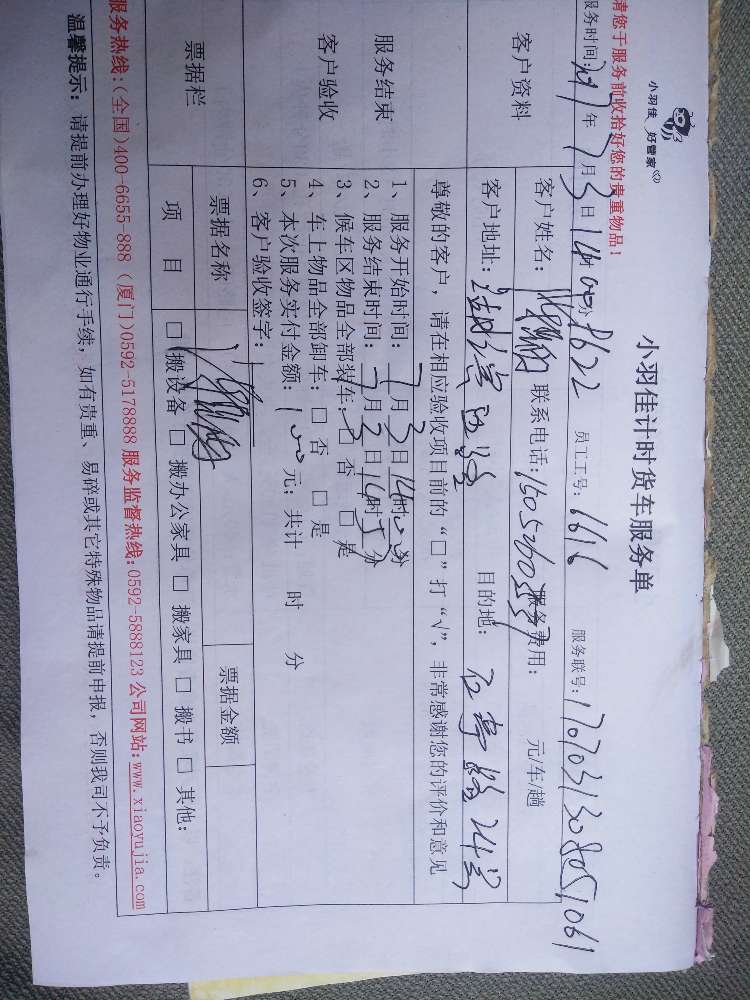 小羽佳 好管家
小羽佳计时货车服务单
请您于服务前收拾好您的贵重物品！
服务时间: 年 7月3日14时00分 8622 员工工号: 1616 服务联号: 170703130805,1061
客户资料
客户姓名: 联系电话: 服务费用: 元/车/趟
客户地址: 目的地:
服务结束
客户验收
尊敬的客户，请在相应验收项目前的“□”打“√”，非常感谢您的评价和意见
1、服务开始时间: 7月3日14时00分
2、服务结束时间: 7月3日 时 分
3、候车区物品全部装车: □ 否 □ 是
4、车上物品全部卸车: □ 否 □ 是
5、本次服务实付金额: 100元; 共计 时 分
6、客户验收签字:
票据栏
票据名称 票据金额
项 目 □ 搬设备 □ 搬办公家具 □ 搬家具 □ 搬书 □ 其他:
服务热线:(全国)400-6655-888 (厦门)0592-5178888 服务监督热线:0592-5888123 公司网站:www.xiaoyujia.com
温馨提示: 请提前办理好物业通行手续，如有贵重、易碎或其它特殊物品请提前申报，否则我司不予负责。